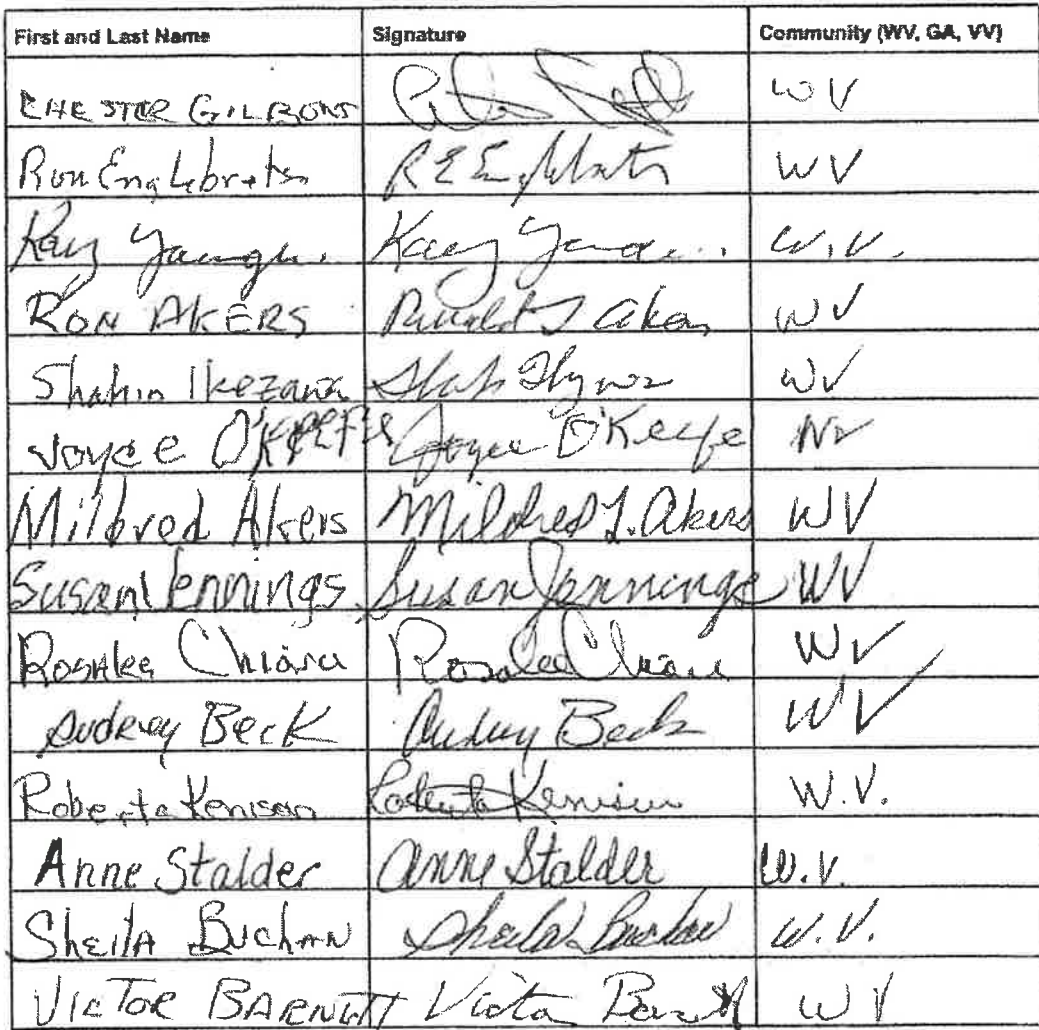 First and Last Name Signature Community (WV, GA, VV)
CHESTER GILBONS WV
Ron Englebreten R E WV
Kay Kay W.V.
RON AKERS Ronald J Akers WV
Shahin Ikezawa WV
Joyce O'KEEFE Joyce O'Keefe
Mildred Akers Mildred L. Akers WV
Susan Jennings Susan Jennings WV
Rosalee Chiara Rosalee Chiara WV
Audrey Beck Audrey Beck WV
Roberta Kenison Roberta Kenison W.V.
Anne Stalder Anne Stalder W.V.
Sheila Buchan Sheila Buchan W.V.
VICTOR BARNETT Victor Barnett WV